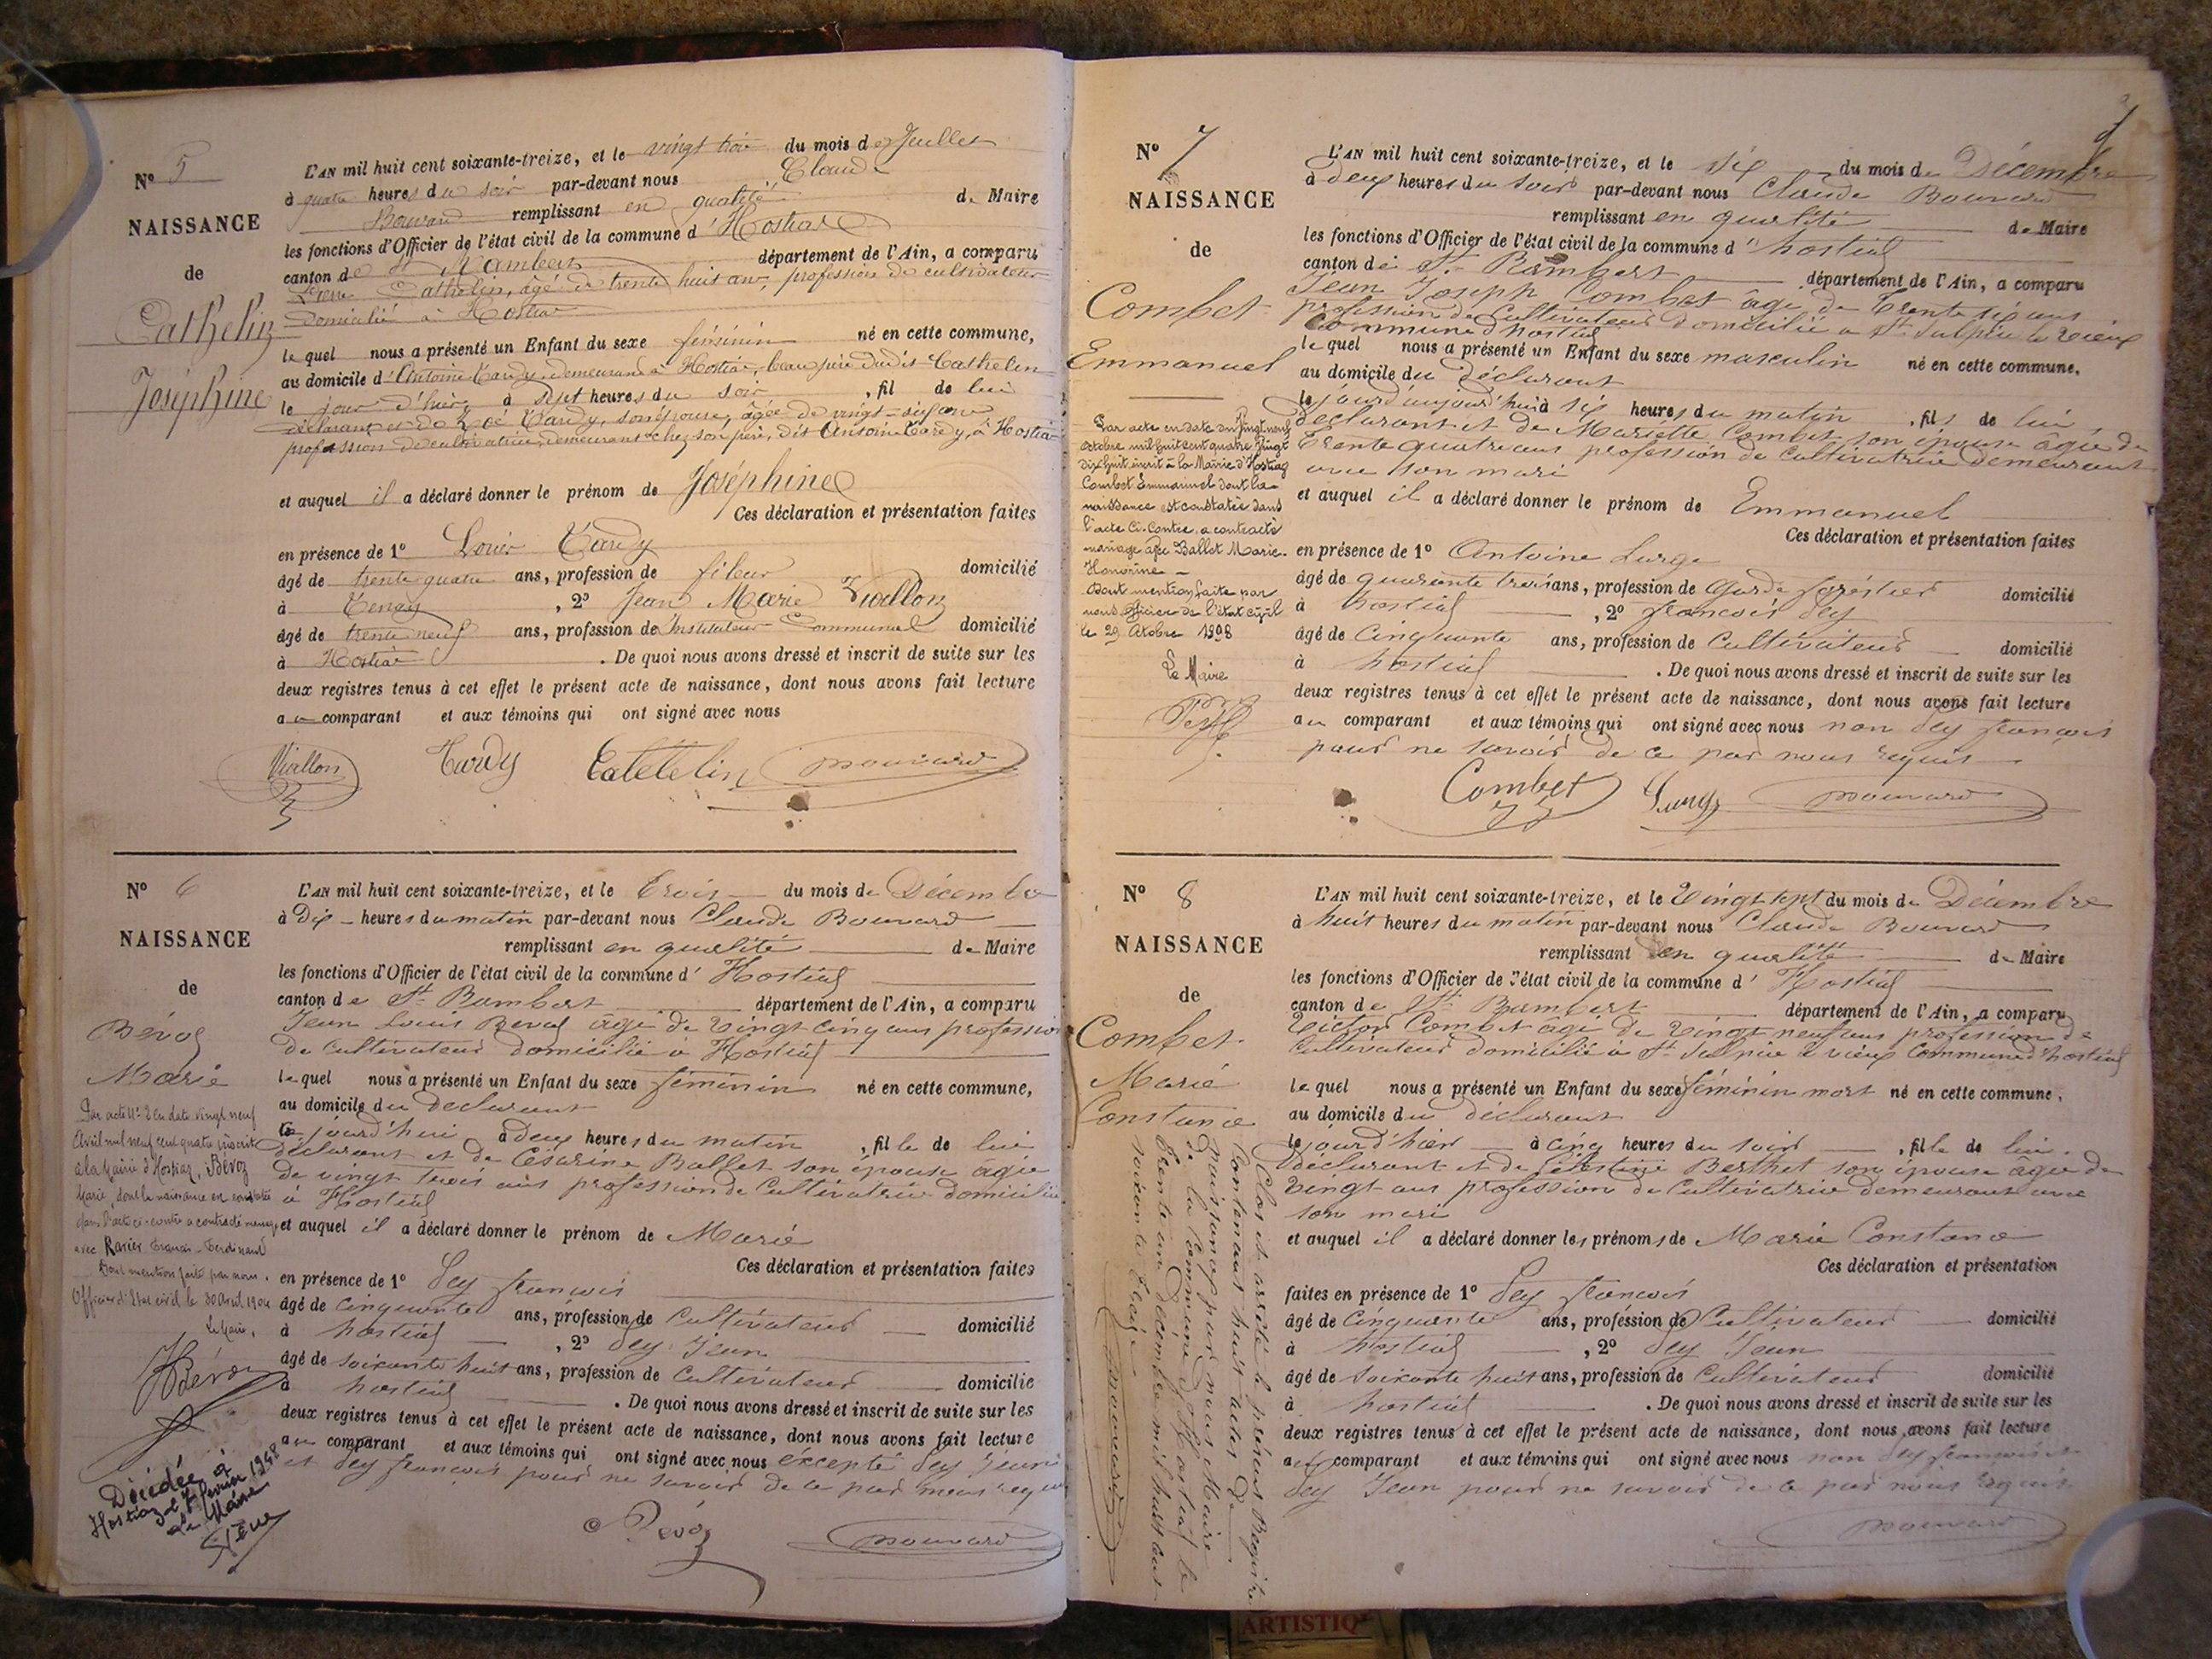 N° 5
NAISSANCE
de
Cathelin
Joséphine
L'AN mil huit cent soixante-treize, et le vingt trois du mois de Juillet
à quatre heures du soir par-devant nous Claude
Bouvard remplissant en qualité de Maire
les fonctions d'Officier de l'état civil de la commune d'Hostiaz
canton de St Rambert département de l'Ain, a comparu
Pierre Cathelin, âgé de trente huit ans, profession de cultivateur
domicilié à Hostiaz
lequel nous a présenté un Enfant du sexe féminin né en cette commune,
au domicile d'Antoine Tardy, demeurant à Hostiaz, beau père dudit Cathelin
le jour d'hier, à sept heures du soir, fil de lui
déclarant et de Zoé Tardy, son épouse, âgée de vingt-six ans
profession de cultivatrice demeurant chez son père, dit Antoine Tardy, à Hostiaz
et auquel il a déclaré donner le prénom de Joséphine
Ces déclaration et présentation faites
en présence de 1° Louis Tardy
âgé de trente quatre ans, profession de fileur domicilié
à Tenay, 2° Jean Marie Viallon
âgé de trente neuf ans, profession de Instituteur Communal domicilié
à Hostiaz. De quoi nous avons dressé et inscrit de suite sur les
deux registres tenus à cet effet le présent acte de naissance, dont nous avons fait lecture
au comparant et aux témoins qui ont signé avec nous
Viallon Tardy Cattelin Bouvard
N° 6
NAISSANCE
de
Bévoz
Marie
Par acte N° 2 en date vingt neuf
Avril mil neuf cent quatre inscrit
à la Mairie d'Hostiaz, Bévoz
Marie, dont la naissance est constatée
dans l'acte ci-contre a contracté mariage
avec Ravier Francis-Ferdinand
Dont mention faite par nous,
Officier d'Etat civil le 30 Avril 1904
Le Maire,
HBévoz
Décédée à
Hostiaz le 7 février 1948
Le Maire
L'AN mil huit cent soixante-treize, et le Trois du mois de Décembre
à Dix heures du matin par-devant nous Claude Bouvard
remplissant en qualité de Maire
les fonctions d'Officier de l'état civil de la commune d'Hostiaz
canton de St Rambert département de l'Ain, a comparu
Jean Louis Bevoz âgé de vingt cinq ans profession
de Cultivateur domicilié à Hostiaz
lequel nous a présenté un Enfant du sexe féminin né en cette commune,
au domicile du déclarant
le jourd'hui à deux heures du matin, fille de lui
déclarant et de Césarine Ballet son épouse agée
de vingt trois ans profession de Cultivatrice domicilié
à Hostiaz
et auquel il a déclaré donner le prénom de Marie
Ces déclaration et présentation faites
en présence de 1° Sey françois
âgé de cinquante ans, profession de Cultivateur domicilié
à hostiaz, 2° Sey Jean
âgé de soixante huit ans, profession de Cultivateur domicilié
à hostiaz. De quoi nous avons dressé et inscrit de suite sur les
deux registres tenus à cet effet le présent acte de naissance, dont nous avons fait lecture
au comparant et aux témoins qui ont signé avec nous excepté Sey Jean
et Sey françois pour ne savoir de ce par nous requis
Bévoz Bouvard
N° 7
NAISSANCE
de
Combet
Emmanuel
Par acte en date du vingt neuf
octobre mil huit cent quatre vingt
dix huit inscrit à la Mairie d'Hostiaz
Combet Emmanuel dont la
naissance est constatée dans
l'acte Ci-Contre, a contracté
mariage avec Ballet Marie-
Honorine
Dont mention faite par
nous officier de l'état civil
le 29 Octobre 1898
Le Maire
L'AN mil huit cent soixante-treize, et le six du mois de Décembre
à deux heures du soir par-devant nous Claude Bouvard
remplissant en qualité de Maire
les fonctions d'Officier de l'état civil de la commune d'hostiaz
canton de St Rambert département de l'Ain, a comparu
Jean Joseph Combet âgé de Trente six ans
profession de Cultivateur domicilié a St Sulpice le vieux
Commune d'hostiaz
lequel nous a présenté un Enfant du sexe masculin né en cette commune,
au domicile du déclarant
le jourd'aujourd'hui à six heures du matin, fils de lui
déclarant et de Mariette Combet son épouse âgée de
Trente quatre ans profession de Cultivatrice demeurant
avec son mari
et auquel il a déclaré donner le prénom de Emmanuel
Ces déclaration et présentation faites
en présence de 1° Antoine Surge
âgé de quarante trois ans, profession de Garde forestier domicilié
à hostiaz, 2° françois Sey
âgé de Cinquante ans, profession de Cultivateur domicilié
à hostiaz. De quoi nous avons dressé et inscrit de suite sur les
deux registres tenus à cet effet le présent acte de naissance, dont nous avons fait lecture
au comparant et aux témoins qui ont signé avec nous non Sey françois
pour ne savoir de ce par nous requis
Combet Surge Bouvard
N° 8
NAISSANCE
de
Combet
Marie
Constance
Clos et arrêté le présent Registre
Contenant huit actes de
Naissance par nous Maire
de la Commune d'Hostiaz le
Trente un décembre mil huit cent
soixante treize
Bouvard
L'AN mil huit cent soixante-treize, et le Vingt sept du mois de Décembre
à huit heures du matin par-devant nous Claude Bouvard
remplissant en qualité de Maire
les fonctions d'Officier de l'état civil de la commune d'Hostiaz
canton de St Rambert département de l'Ain, a comparu
Victor Combet agé de vingt neuf ans profession de
Cultivateur domicilié à St Sulpice le vieux Commune d'hostiaz
lequel nous a présenté un Enfant du sexe féminin mort né en cette commune,
au domicile du déclarant
le jourd'hier à cinq heures du soir, fille de lui
déclarant et de Célestine Berthet son épouse agée de
Vingt ans profession de Cultivatrice demeurant avec
son mari
et auquel il a déclaré donner les prénoms de Marie Constance
Ces déclaration et présentation
faites en présence de 1° Sey françois
âgé de Cinquante ans, profession de Cultivateur domicilié
à hostiaz, 2° Sey Jean
âgé de soixante huit ans, profession de Cultivateur domicilié
à hostiaz. De quoi nous avons dressé et inscrit de suite sur les
deux registres tenus à cet effet le présent acte de naissance, dont nous avons fait lecture
au comparant et aux témoins qui ont signé avec nous non Sey françois et
Sey Jean pour ne savoir de ce par nous requis
Bouvard
ARTISTIQ